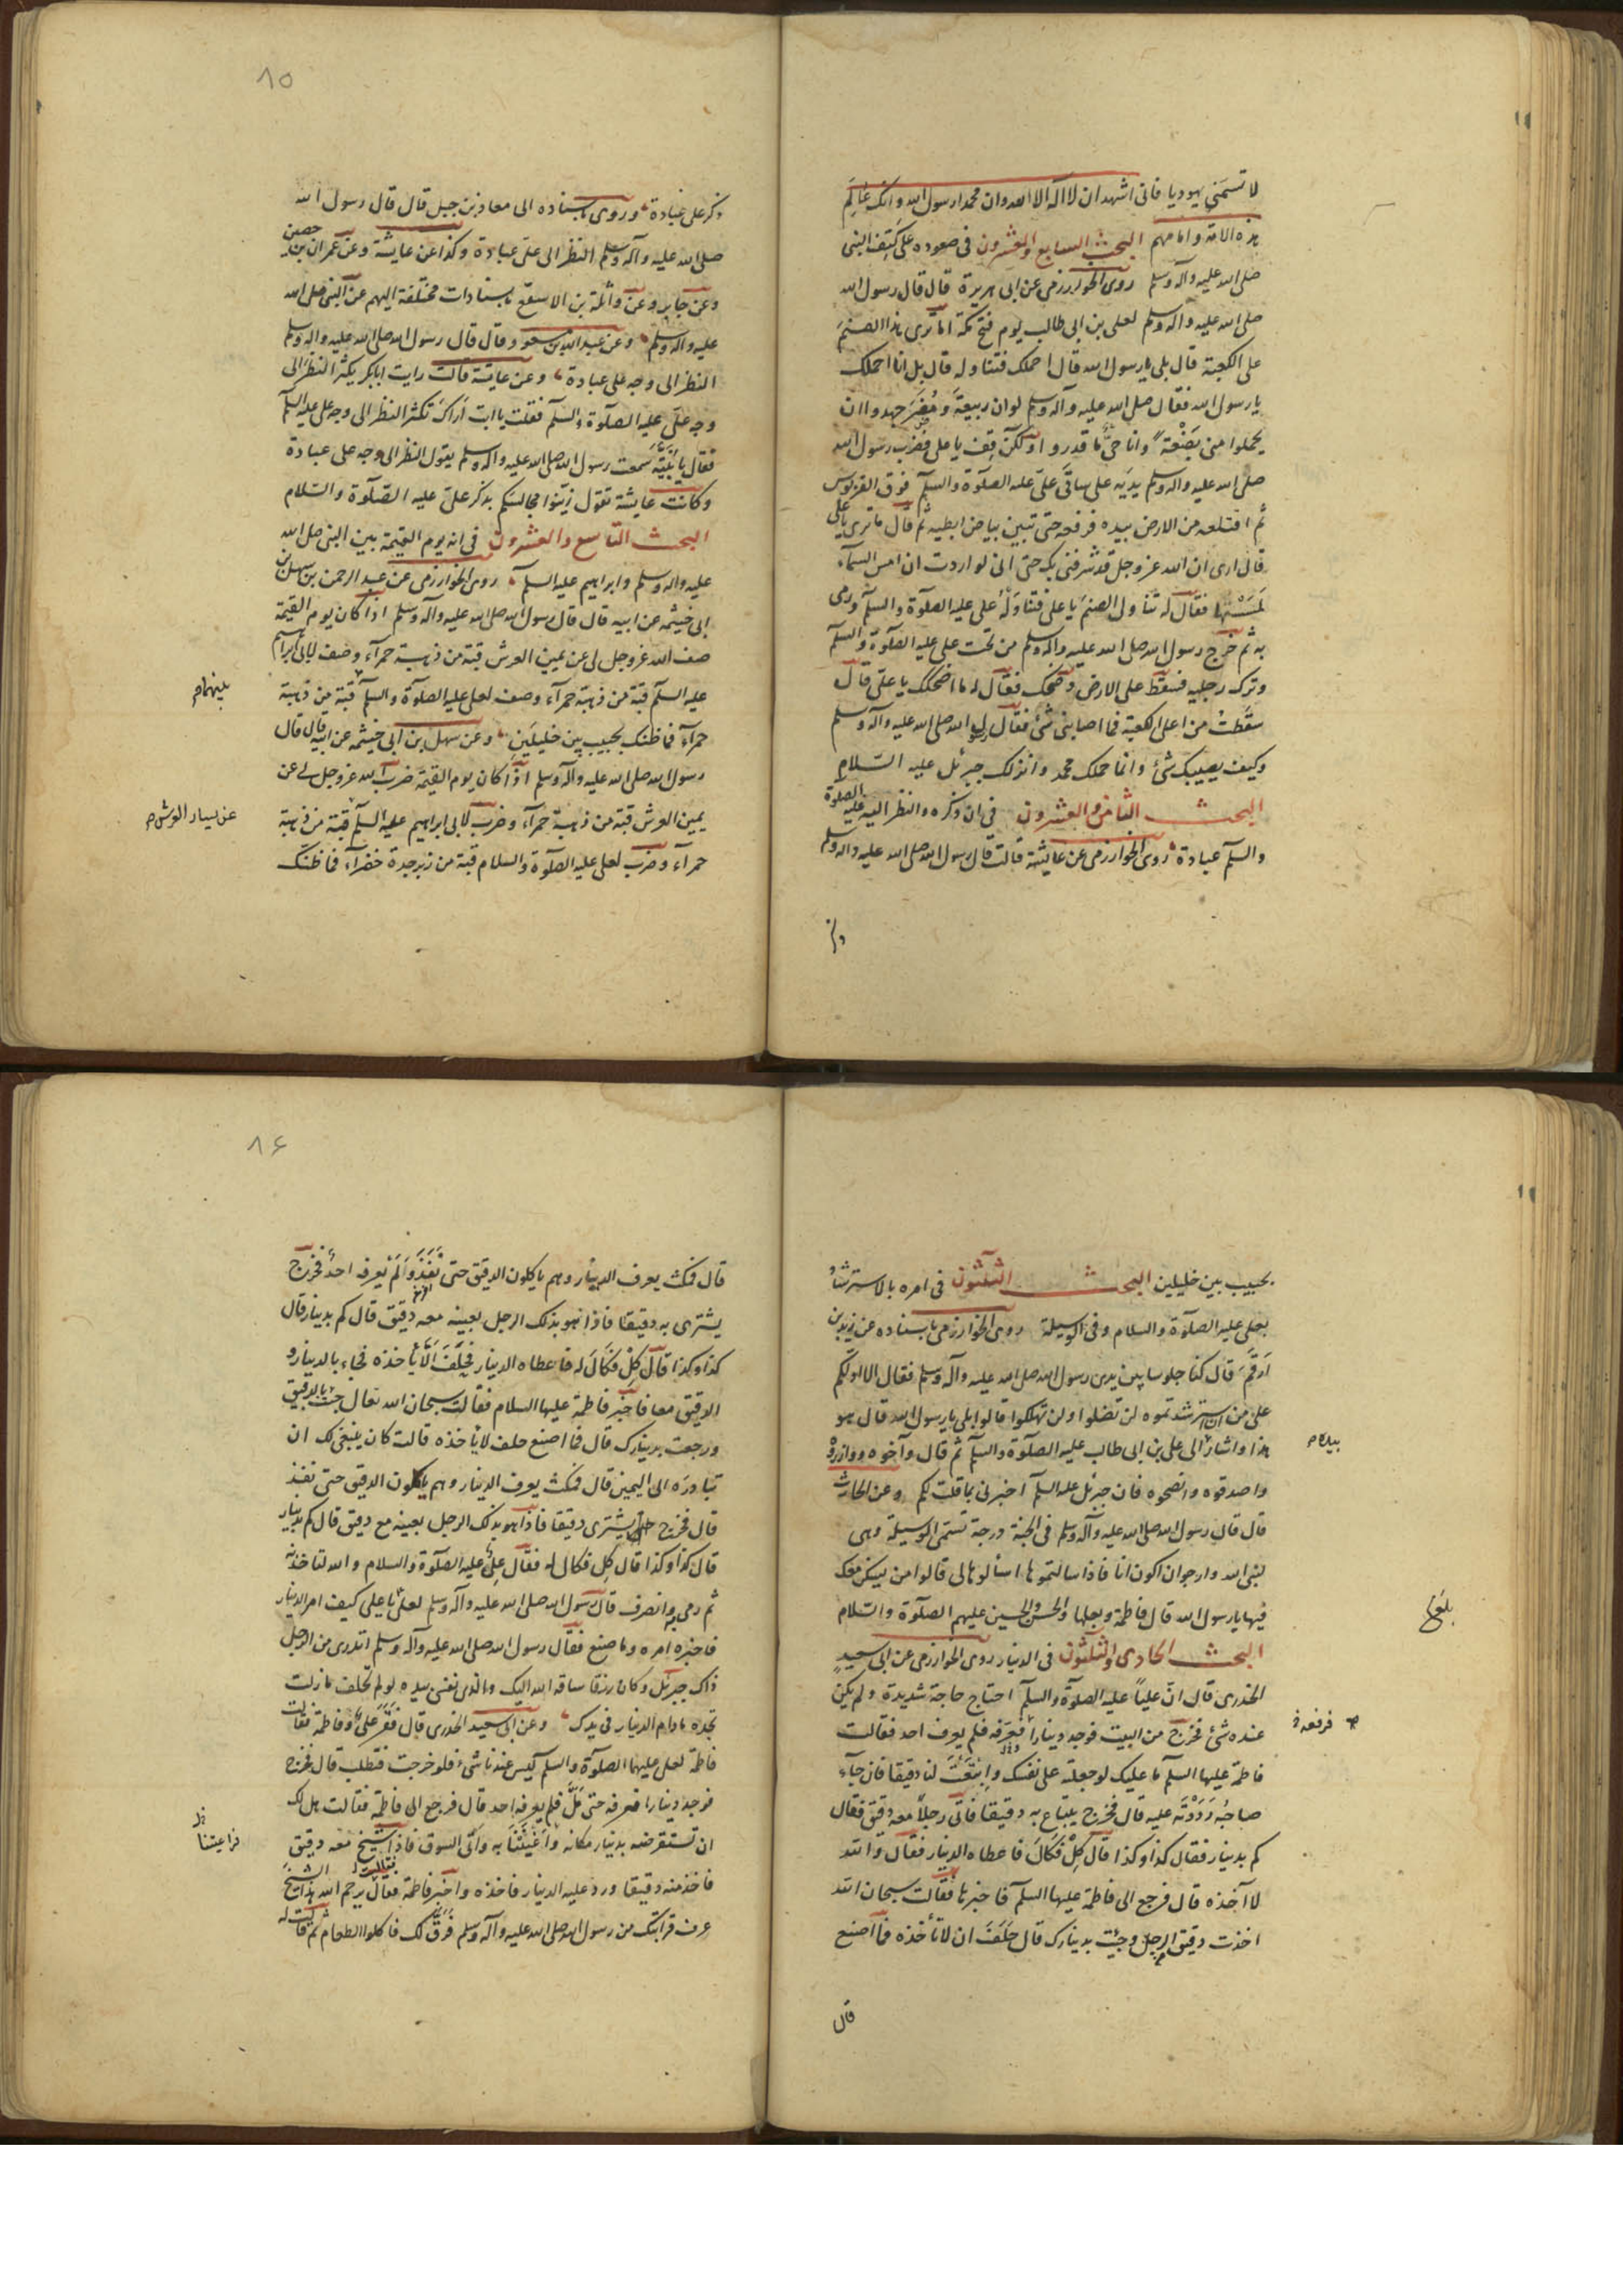 لا تسمني يهوديا فانى اشهد ان لا اله الا الله وان محمدا رسول الله وانك عالم
هذه الامة وامامهم البحث السابع والعشرون فى صعوده على كتف النبى
صلى الله عليه وآله وسلم روى الخوارزمى عن ابى هريرة قال قال رسول الله
صلى الله عليه وآله وسلم لعلى بن ابى طالب يوم فتح مكة اما ترى هذا الصنم
على الكعبة قال بلى يا رسول الله قال احملك فتناوله قال بل انا احملك
يا رسول الله فقال صلى الله عليه وآله وسلم لو ان ربيعة ومضر جهدوا ان
يحملوا منى بضعة وانا حى ما قدروا ولكن قف يا على فضرب رسول الله
صلى الله عليه واله وسلم يديه على ساقى على عليه الصلوة والسلم فوق القربوس
ثم اقتلعه من الارض بيده فرفعه حتى تبين بياض ابطيه ثم قال ما ترى يا على
قال ارى ان الله عز وجل قد شرفنى بك حتى انى لو اردت ان امس السماء
لمستها فقال له تناول الصنم يا على فتناوله على عليه الصلوة والسلم ورمى
به ثم خرج رسول الله صلى الله عليه واله وسلم من تحت على عليه الصلوة والسلم
وترك رجليه فسقط على الارض وضحك فقال له ما اضحكك يا على قال
سقطت من اعلى الكعبة فما اصابنى شئ فقال رسول الله صلى الله عليه وآله وسلم
وكيف يصيبك شئ وانما حملك محمد وانزلك جبرئل عليه السلام
البحث الثامن والعشرون فى ان ذكره والنظر اليه عليه الصلوة
والسلم عبادة روى الخوارزمى عن عايشة قالت قال رسول الله صلى الله عليه واله وسلم
٨٥
ذكر على عبادة وروى باسناده الى معاذ بن جبل قال قال رسول الله
صلى الله عليه وآله وسلم النظر الى على عبادة وكذا عن عايشة وعن عمران بن حصين
وعن جابر وعن واثلة بن الاسقع باسنادات مختلفة اليهم عن النبى صلى الله
عليه واله وسلم وعن عبد الله بن مسعود قال قال رسول الله صلى الله عليه واله وسلم
النظر الى وجه على عبادة وعن عايشة قالت رايت ابابكر يكثر النظر الى
وجه على عليه الصلوة والسلم فقلت يا ابت اراك تكثر النظر الى وجه على عليه السلم
فقال يا بنية سمعت رسول الله صلى الله عليه واله وسلم يقول النظر الى وجه على عبادة
وكانت عايشة تقول زينوا مجالسكم بذكر على عليه الصلوة والسلام
البحث التاسع والعشرون فى انه يوم القيمة بين النبى صلى الله
عليه واله وسلم وابراهيم عليه السلم روى الخوارزمى عن عبد الرحمن بن سهل بن
ابى خيثمه عن ابيه قال قال رسول الله صلى الله عليه وآله وسلم اذا كان يوم القيمة
صف الله عز وجل لى عن يمين العرش قبة من ذهبة حمرآء وصف لابى ابراهيم
عليه السلم قبة من ذهبة حمرآء وصف لعلى عليه الصلوة والسلم قبة من ذهبة
بينهما م
حمرآء فما ظنك بحبيب بين خليلين وعن سهل بن ابى خيثمه عن ابيه قال قال
رسول الله صلى الله عليه وآله وسلم اذا كان يوم القيمة ضرب الله عز وجل لى عن
يمين العرش قبة من ذهبة حمرآء وضرب لابى ابراهيم عليه السلم قبة من ذهبة
عن يسار العرش م
حمرآء وضرب لعلى عليه الصلوة والسلام قبة من زبرجدة خضرآء فما ظنك
بحبيب بين خليلين البحث الثلثون فى امره بالاسترشاد
بعلى عليه الصلوة والسلام وفى الوسيلة روى الخوارزمى باسناده عن زيد بن
ارقم قال كنا جلوسا بين يدى رسول الله صلى الله عليه وآله وسلم فقال الا ادلكم
على من ان استرشدتموه لن تضلوا ولن تهلكوا قالوا بلى يا رسول الله قال هو
هذا واشار الى على بن ابى طالب عليه الصلوة والسلم ثم قال وآخوه ووازروه
بيده م
واصدقوه وانصحوه فان جبرئل عليه السلم اخبرنى بما قلت لكم وعن الحارث
قال قال رسول الله صلى الله عليه وآله وسلم فى الجنة درجة تسمى الوسيلة وهى
لنبى الله وارجو ان اكون انا فاذا سالتموها اسئالوها لى قالوا من يسكن معك
فيها يا رسول الله قال فاطمة وبعلها والحسن والحسين عليهم الصلوة والسلام
بلغ
البحث الحادى والثلثون فى الدنيار روى الخوارزمى عن ابى سعيد
الخدرى قال ان عليا عليه الصلوة والسلم احتاج حاجة شديدة ولم يكن
عنده شئ فخرج من البيت فوجد دينارا فعرفه فلم يعرف احد فقالت
فاطمة عليها السلم ما عليك لو جعلته على نفسك وابتعت لنا دقيقا فان جآء
صاحبه رددته عليه قال فخرج يبتاع به دقيقا فاتى رجلا معه دقيق فقال
كم بدينار فقال كذا وكذا قال كل فكال فاعطاه الدينار فقال والله
لا آخذه قال فرجع الى فاطمة عليها السلم فاخبرها فقالت سبحان الله
اخذت دقيق الرجل وجئت بدينارك قال حلف ان لا يأخذه فما اصنع
قال
٨٦
قال فمكث يعرف الدينار وهم ياكلون الدقيق حتى نفذ ولم يعرفه احد فخرج
يشترى به دقيقا فاذا هو بذلك الرجل بعينه معه دقيق قال كم بدينار قال
كذا وكذا قال كل فكال له فاعطاه الدينار فحلف الا يأخذه فجاء بالدينار و
الدقيق معا فاخبر فاطمة عليها السلام فقالت سبحان الله تعالى جئت بالدقيق
ورجعت بدينارك قال فما اصنع حلف لا ياخذه قالت كان ينبغى لك ان
تبادره الى اليمين قال فمكث يعرف الدينار وهم ياكلون الدقيق حتى نفذ
قال فخرج يشترى دقيقا فاذا هو بذلك الرجل بعينه مع دقيق قال كم بدينار
قال كذا وكذا قال كل فكال له فقال على عليه الصلوة والسلام والله لتاخذنه
ثم رمى به وانصرف قال رسول الله صلى الله عليه وآله وسلم لعلى يا على كيف امر الدينار
فاخبره امره وما صنع فقال رسول الله صلى الله عليه وآله وسلم اتدرى من الرجل
ذاك جبرئل وكان رزقا ساقه الله اليك والذى نفسى بيده لو لم تحلف ما زلت
تجده ما دام الدينار فى يدك وعن ابى سعيد الخدرى قال فقر على وفاطمة فقالت
فاطمة لعلى عليهما الصلوة والسلم ليس عندنا شئ فلو خرجت فتطلب قال فخرج
فوجد دينارا فعرفه حتى مل فلم يعرفه احد قال فرجع الى فاطمة فقالت هل لك
ان تستقرضه بدينار مكانه واغثتنا به واتى السوق فاذا شيخ معه دقيق
فاخذ منه دقيقا ورد عليه الدينار فاخذه واخبر فاطمة فقال يرحم الله هذا الشيخ
عرف قرابتك من رسول الله صلى الله عليه وآله وسلم فرق لك فاكلوا الطعام ثم قالت له